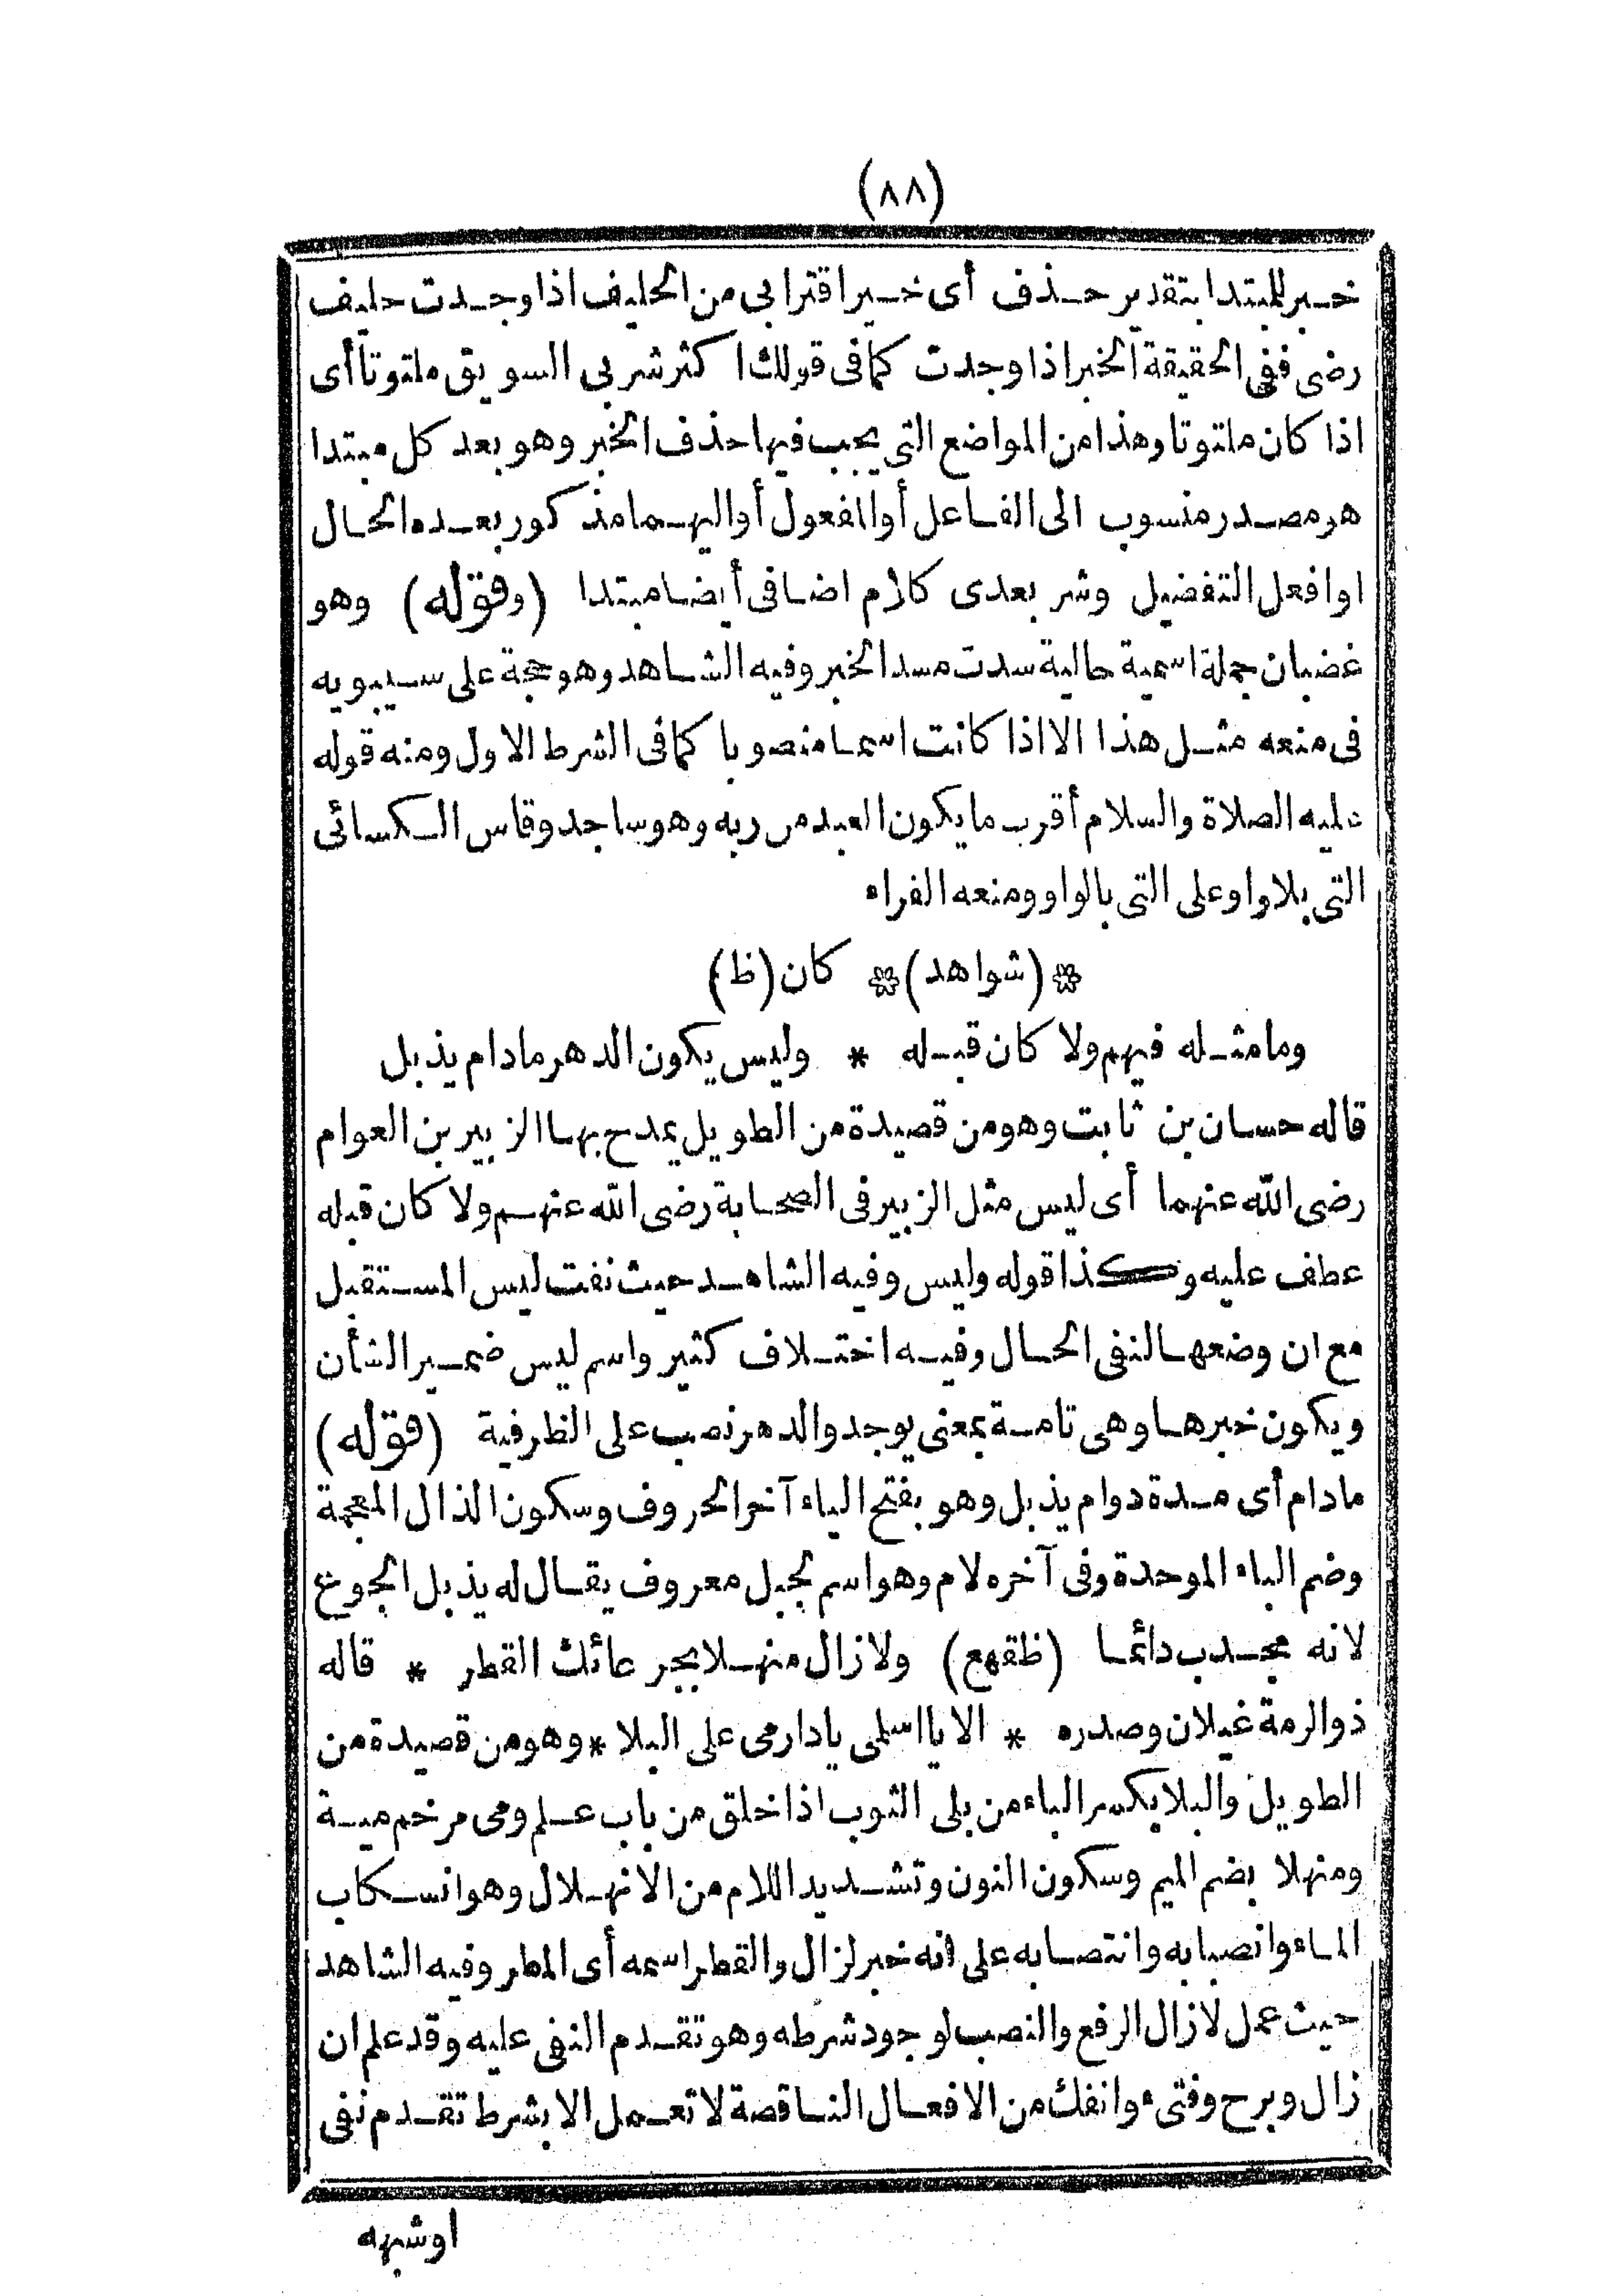 (٨٨)
خبر للمبتدا بتقدير حذف أى خير اقترابى من الحليف اذا وجدت حليف
رضى ففى الحقيقة الخبر اذا وجدت كما فى قولك ا كثر شربى السويق ملتوتا أى
اذا كان ملتوتا وهذا من المواضع التى يجب فيها حذف الخبر وهو بعد كل مبتدا
هو مصدر منسوب الى الفاعل أو المفعول أو اليهما مذ كور بعده الحال
اوافعل التفضيل وشر بعدى كلام اضافى أيضا مبتدا (وقوله) وهو
غضبان جملة اسمية حالية سدت مسد الخبر وفيه الشاهد وهو حجة على سيبويه
فى منعه مثل هذا الا اذا كانت اسما منصوبا كما فى الشرط الاول ومنه قوله
عليه الصلاة والسلام أقرب ما يكون العبد من ربه وهو ساجد وقاس الكسائى
التى بلا واو على التى بالواو ومنعه الفراء
* (شواهد) * كان (ظ)
وما مثله فيهم ولا كان قبله * وليس يكون الدهر مادام يذبل
قاله حسان بن ثابت وهو من قصيدة من الطويل يمدح بها الزبير بن العوام
رضى الله عنهما أى ليس مثل الزبير فى الصحابة رضى الله عنهم ولا كان قبله
عطف عليه وكذا قوله وليس وفيه الشاهد حيث نفت ليس المستقبل
مع ان وضعها لنفى الحال وفيه اختلاف كثير واسم ليس ضمير الشأن
ويكون خبرها وهى تامة بمعنى يوجد والدهر نصب على الظرفية (قوله)
مادام أى مدة دوام يذبل وهو بفتح الياء آخر الحروف وسكون الذال المعجمة
وضم الباء الموحدة وفى آخره لام وهو اسم لجبل معروف يقال له يذبل الجوع
لانه مجدب دائما (ظقهع) ولا زال منهلا بجرعائك القطر * قاله
ذوالرمة غيلان وصدره * الا يا اسلمى يادار مى على البلا * وهو من قصيدة من
الطويل والبلا بكسر الباء من بلى الثوب اذا خلق من باب علم ومى مرخم مية
ومنهلا بضم الميم وسكون النون وتشديد اللام من الانهلال وهو انسكاب
الماء وانصبابه وانتصابه على انه خبر لزال والقطر اسمه أى المطر وفيه الشاهد
حيث عمل لا زال الرفع والنصب لوجود شرطه وهو تقدم النفى عليه وقد علم ان
زال وبرح وفتىء وانفك من الافعال الناقصة لا تعمل الا بشرط تقدم نفى
اوشبهه